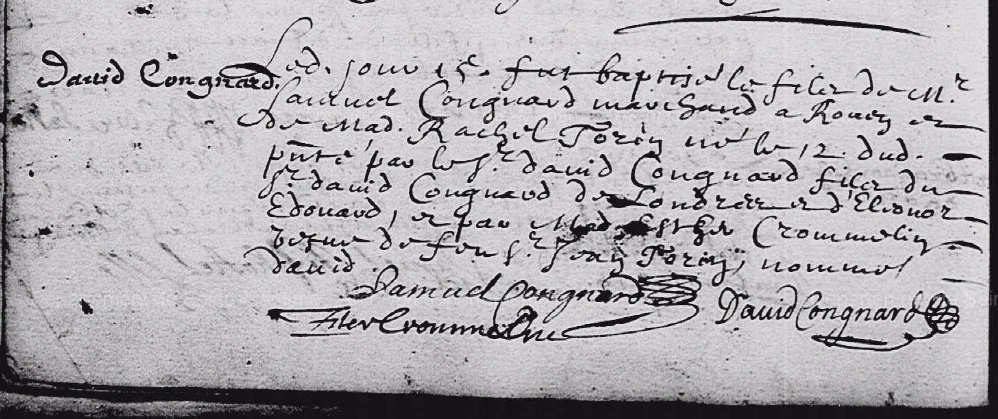 David Congnard.
Led. jour 15. fut baptisé le filz de Mr.
Samuel Congnard marchand a Rouen et
de Mad. Rachel Torin né le 12. dud.
pnté par le Sr. David Congnard filz du
Sr. david Congnard de Londres et d'Eleonor
Edouard, et par Mad. Esther Crommelin
vefve de feu Sr. Jean Torin, nommé
david.
Samuel Congnard David Congnard
Ester Crommelin